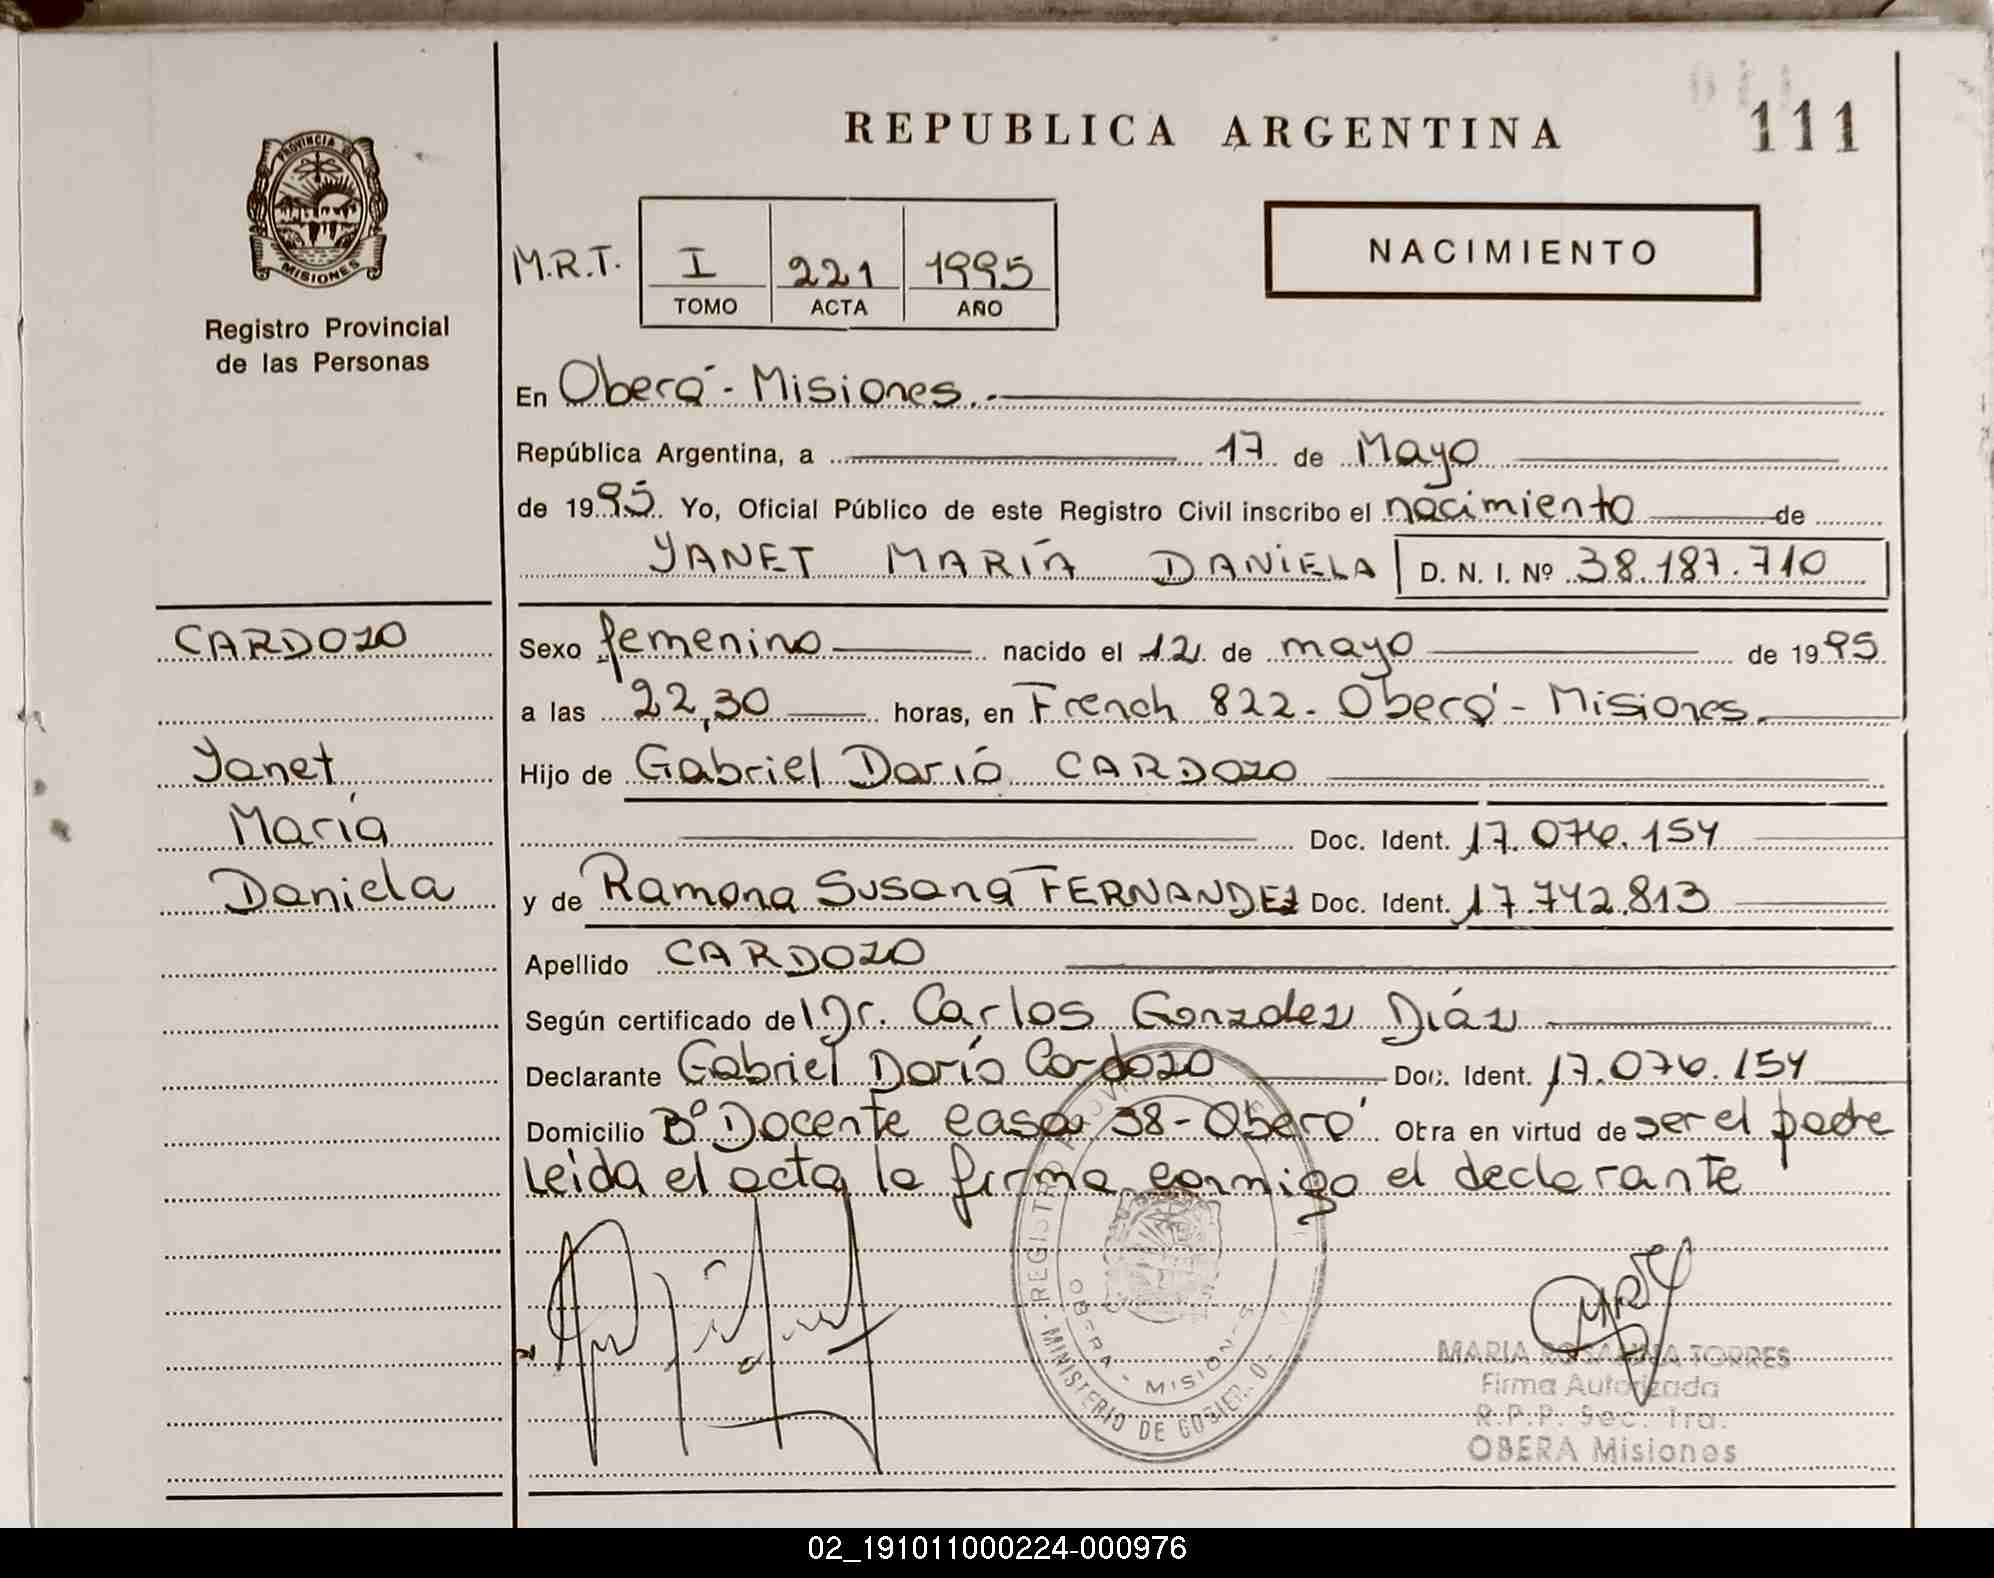 REPUBLICA ARGENTINA
111
PROVINCIA DE MISIONES
Registro Provincial
de las Personas
M.R.T.
I 221 1995
TOMO ACTA AÑO
NACIMIENTO
En Oberá - Misiones.
República Argentina, a 17 de Mayo
de 1995. Yo, Oficial Público de este Registro Civil inscribo el nacimiento de
YANET MARÍA DANIELA D. N. I. Nº 38.187.710
CARDOZO
Yanet
María
Daniela
Sexo femenino nacido el 12 de mayo de 1995
a las 22,30 horas, en French 822 - Oberá - Misiones.
Hijo de Gabriel Darío CARDOZO
Doc. Ident. 17.076.154
y de Ramona Susana FERNANDEZ Doc. Ident. 17.742.813
Apellido CARDOZO
Según certificado de Dr. Carlos Gonzalez Diáz
Declarante Gabriel Darío Cardozo Doc. Ident. 17.076.154
Domicilio Bº Docente casa 38 - Oberá Obra en virtud de ser el padre
Leida el acta la firma conmigo el declarante
REGISTRO PROVI
OBERA - MISIONES
MINISTERIO DE GOBIER O
MARIA ROSANNA TORRES
Firma Autorizada
R.P.P. Sec. 1ra.
OBERA Misiones
02_191011000224-000976